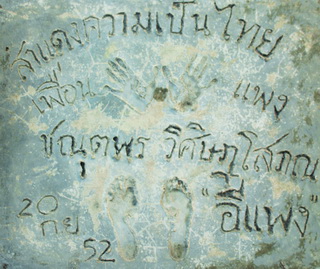 สำแดงความเป็นไทย
เพื่อน แพง
ชณุตพร วิศิษฎโสภณ
"อีแพง"
20
ก.ย
52